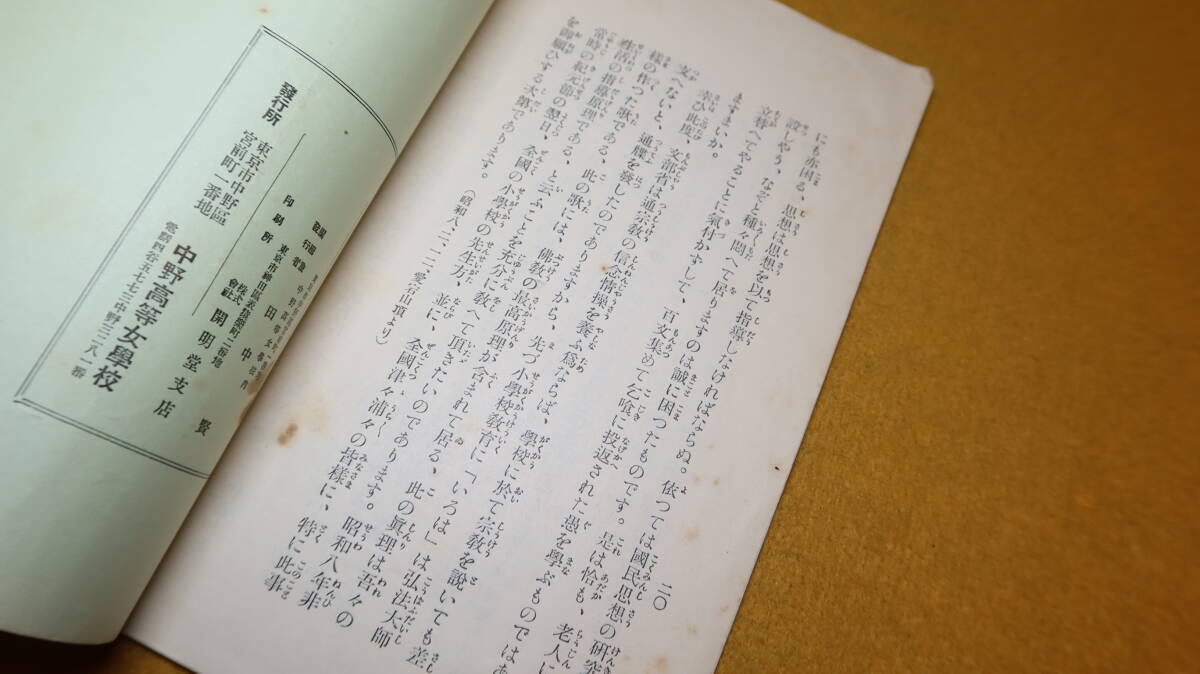 二〇
にも亦困る、思想は思想を以て指導しなければならぬ。依つては國民思想の研究
設しやう、なぞと種々悶へて居りますのは誠に困つたものです。是は恰も、老人に
立替へてやることに氣付かずして、百文集めて乞喰に投返された愚を學ぶものではあ
ますまいか。
幸ひ此度、文部省は通宗教の信念情操を養ふ爲ならば、學校に於て宗教を說いても差
支へないと、通牒を發したのでありますから、先づ小學校教育に「いろは」は弘法大師
樣の作つた歌である、此の歌には、佛教の最高原理が含まれて居る、此の眞理は吾々の
生活の指導原理である、と云ふことを充分に教へて頂きたいのであります。昭和八年非
常時の紀元節の翌日、全國の小學校の先生方、並に、全國津々浦々の皆樣に、特に此事
を御願ひする次第であります。
(昭和八、二、一二、愛宕山頂より)
印刷所
東京市神田區
株式會社
開明堂支店
發行所
東京市中野區宮前町一番地
中野高等女學校
電話四谷五七七三中野三二八一番